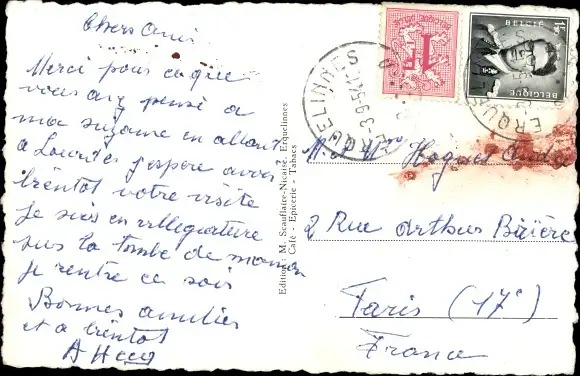 Chers Amis
Merci pour ce que
vous avez pensé a
ma suzanne en allant
a Lourdes j'espère avoir
bientot votre visite
je suis en villegiature
sur la tombe de maman
je rentre ce soir
Bonnes amitiés
et a bientot
Editions M. Scauflaire-Nicaise, Erquelinnes
Café - Epicerie - Tabacs
BELGIE
BELGIQUE
1F50
1F
ERQUELINNES
-3-9-54
ERQUE
M. et Mme Hogues André
2 Rue Arthur Brière
Paris (17e)
France